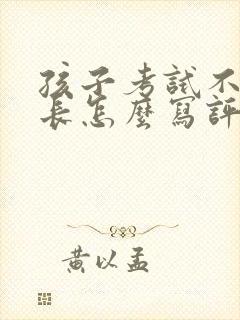 孩子考試不
長怎麼寫評
黃以孟